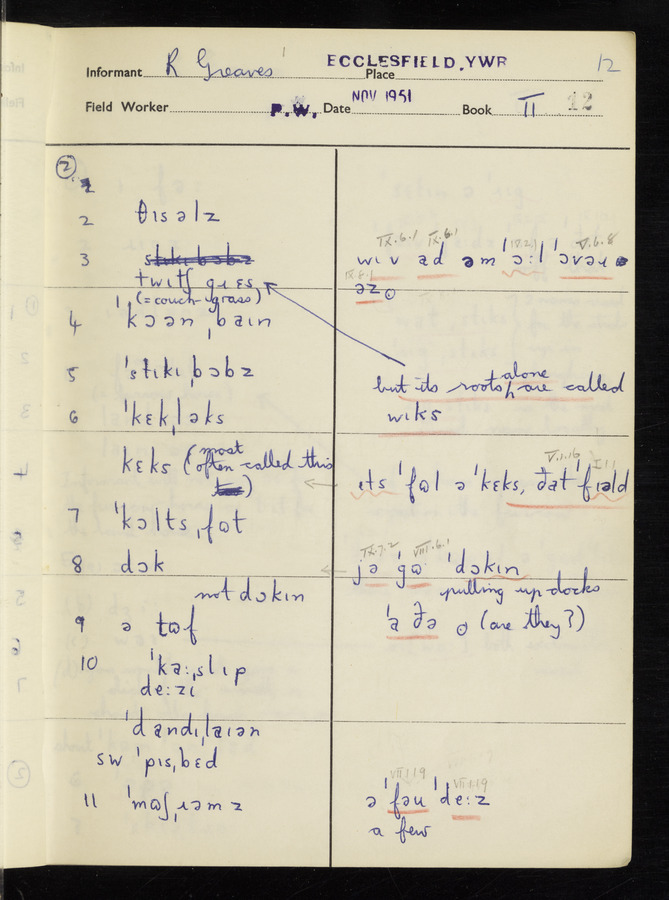 Informant R Greaves
Place ECCLESFIELD, YWR
12
Field Worker P.W.
Date NOV 1951
Book II 12
②
2 θɪsəlz
3
twɪtʃ gɹɛs
(= couch-grass)
4 kɔən ˌbaɪn
5 ˈstɪkɪˌbɔbz
6 ˈkɛkˌləks
kɛks (most
often called this
)
7 ˈkɔltsˌfʊt
8 dɔk
not dɔkɪn
9 ə tʊf
10 ˈkaːˌslɪp
deːzɪ
ˈdandɪˌlaɪən
SW ˈpɪsˌbɛd
11 ˈmʊʃˌɹəmz
IX.6.1 IX.6.1 V.6.8
wɪv ad əm ˈɔːl ˈɔvəɹ
IX.8.1
əz
but its roots alone are called
wɪks
V.1.16 I.1.1
ɪts ˈfʊl ə ˈkɛks, ðat ˈfɪəld
IX.7.2 VIII.6.1
jə ˈgʊ ˈdɔkɪn
pulling up docks
ˈa ðə o (are they?)
VII.1.19 VII.1.19
ə ˈfəu ˈdeːz
a few